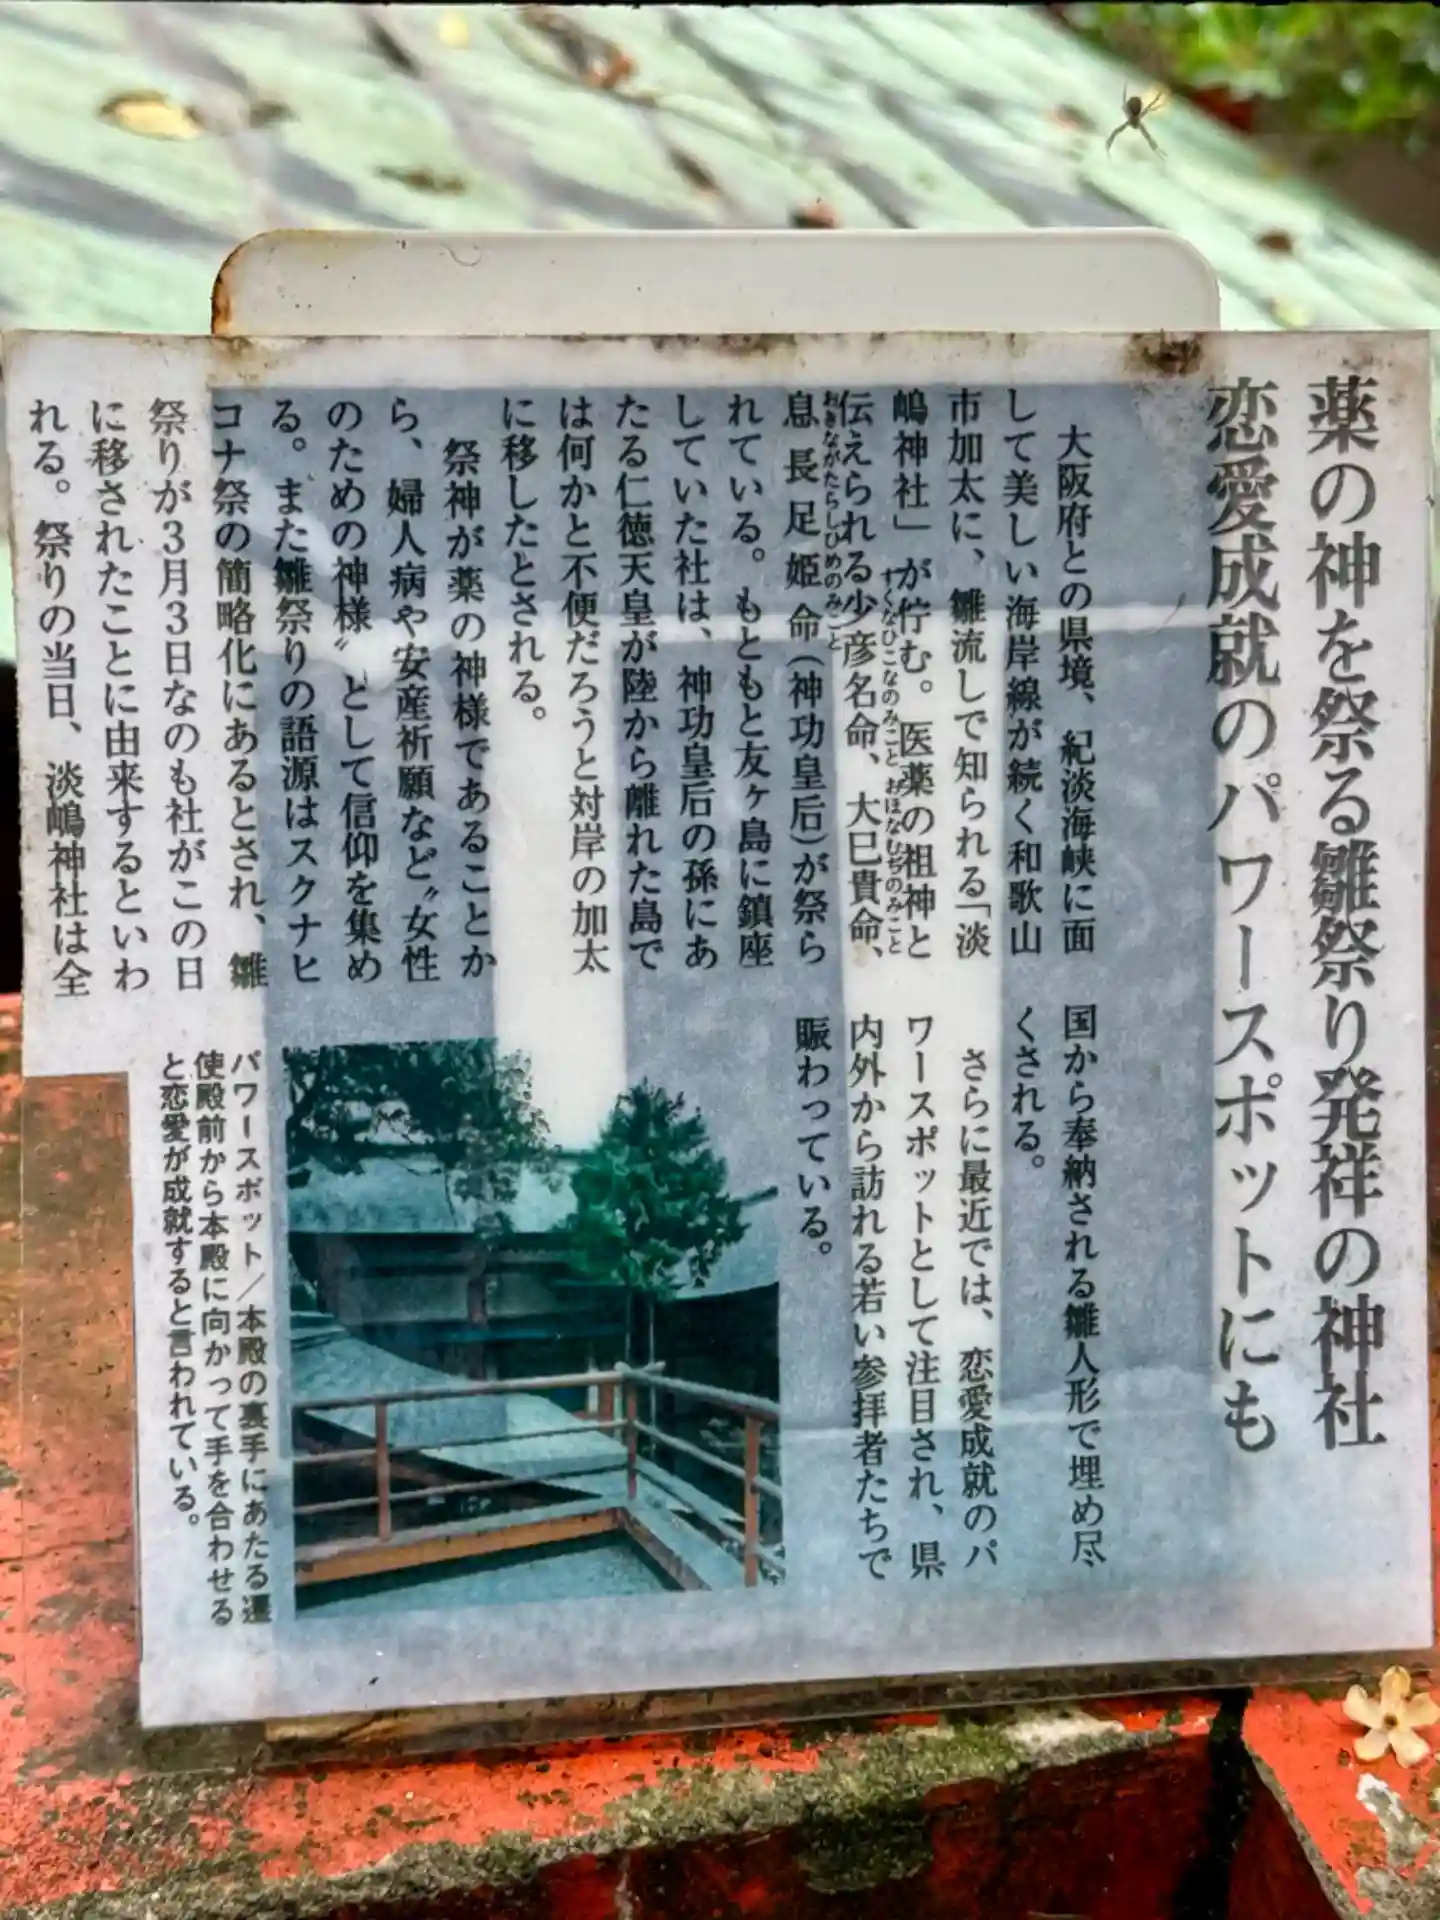 薬の神を祭る雛祭り発祥の神社
恋愛成就のパワースポットにも
大阪府との県境、紀淡海峡に面
して美しい海岸線が続く和歌山
市加太に、雛流しで知られる「淡
嶋神社」が佇む。医薬の祖神と
すくなひこなのみこと おほなむぢのみこと
伝えられる少彦名命、大巳貴命、
おきながたらしひめのみこと
息長足姫命（神功皇后）が祭ら
れている。もともと友ヶ島に鎮座
していた社は、神功皇后の孫にあ
たる仁徳天皇が陸から離れた島で
は何かと不便だろうと対岸の加太
に移したとされる。
祭神が薬の神様であることか
ら、婦人病や安産祈願など〝女性
のための神様〟として信仰を集め
る。また雛祭りの語源はスクナヒ
コナ祭の簡略化にあるとされ、雛
祭りが3月3日なのも社がこの日
に移されたことに由来するといわ
れる。祭りの当日、淡嶋神社は全
国から奉納される雛人形で埋め尽
くされる。
さらに最近では、恋愛成就のパ
ワースポットとして注目され、県
内外から訪れる若い参拝者たちで
賑わっている。
パワースポット／本殿の裏手にあたる遷
使殿前から本殿に向かって手を合わせる
と恋愛が成就すると言われている。